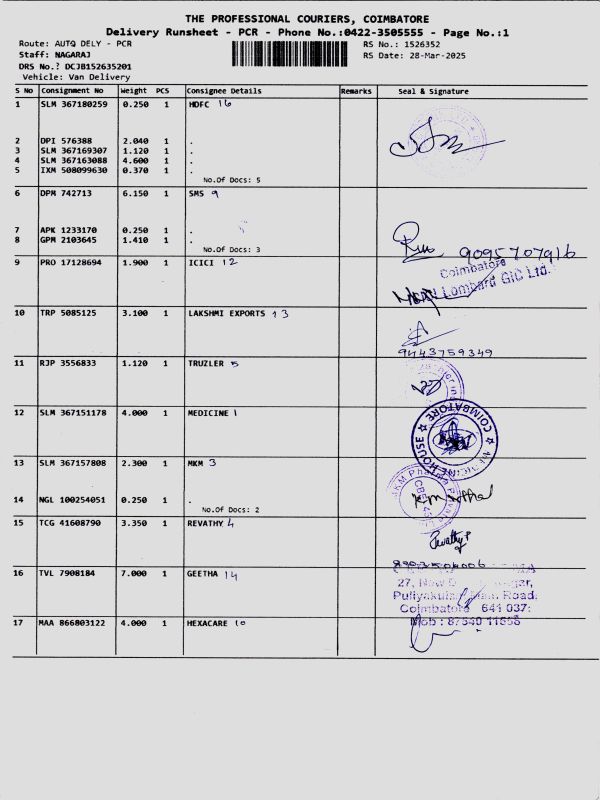 THE PROFESSIONAL COURIERS, COIMBATORE
Delivery Runsheet - PCR - Phone No.:0422-3505555 - Page No.:1
Route: AUTO DELY - PCR RS No.: 1526352
Staff: NAGARAJ RS Date: 28-Mar-2025
DRS No.: DCJB152635201
Vehicle: Van Delivery
S No Consignment No Weight PCS Consignee Details Remarks Seal & Signature
1 SLM 367180259 0.250 1 HDFC 16
2 DPI 576388 2.040 1 .
3 SLM 367169307 1.120 1 .
4 SLM 367163088 4.600 1 .
5 IXM 508099630 0.370 1 .
No.Of Docs: 5
6 DPM 742713 6.150 1 SMS 9
7 APK 1233170 0.250 1 .
8 GPM 2103645 1.410 1 .
No.Of Docs: 3
9095707916
9 PRO 17128694 1.900 1 ICICI 12
Coimbatore
Lombard GIC Ltd.
10 TRP 5085125 3.100 1 LAKSHMI EXPORTS 13
9443759349
11 RJP 3556833 1.120 1 TRUZLER 5
12 SLM 367151178 4.000 1 MEDICINE 1
COIMBATORE
HOUSE
13 SLM 367157808 2.300 1 MKM 3
MKM Pharma
14 NGL 100254051 0.250 1 .
No.Of Docs: 2
15 TCG 41608790 3.350 1 REVATHY 4
Revathy P
16 TVL 7908184 7.000 1 GEETHA 14
27, New
Puliyakulam Main Road,
Coimbatore 641 037:
Mob :
17 MAA 866803122 4.000 1 HEXACARE 10